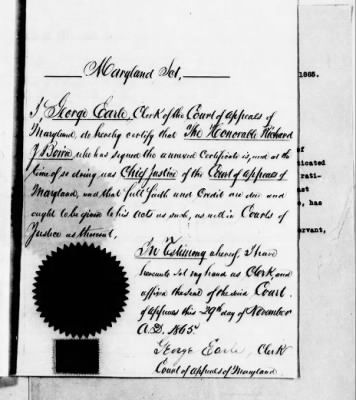 Maryland Sct,
1865.
I George Earle, Clerk of the Court of appeals of
Maryland, do hereby certify that The Honorable Richard
J Bowie, who has signed the annexed Certificate is, and at the
of
time of so doing was Chief Justice of the Court of appeals of
icated
rati-
Maryland, and that full faith and Credit are due and
ast
ought to be given to his acts as such, as well in Courts of
, has
Justice as thereout,
ervant,
In Testimony whereof, I have
hereunto set my hand as Clerk and
affixed the seal of the said Court
of appeals this 29th day of November
A.D. 1865
George Earle, Clerk
Court of appeals of Maryland.